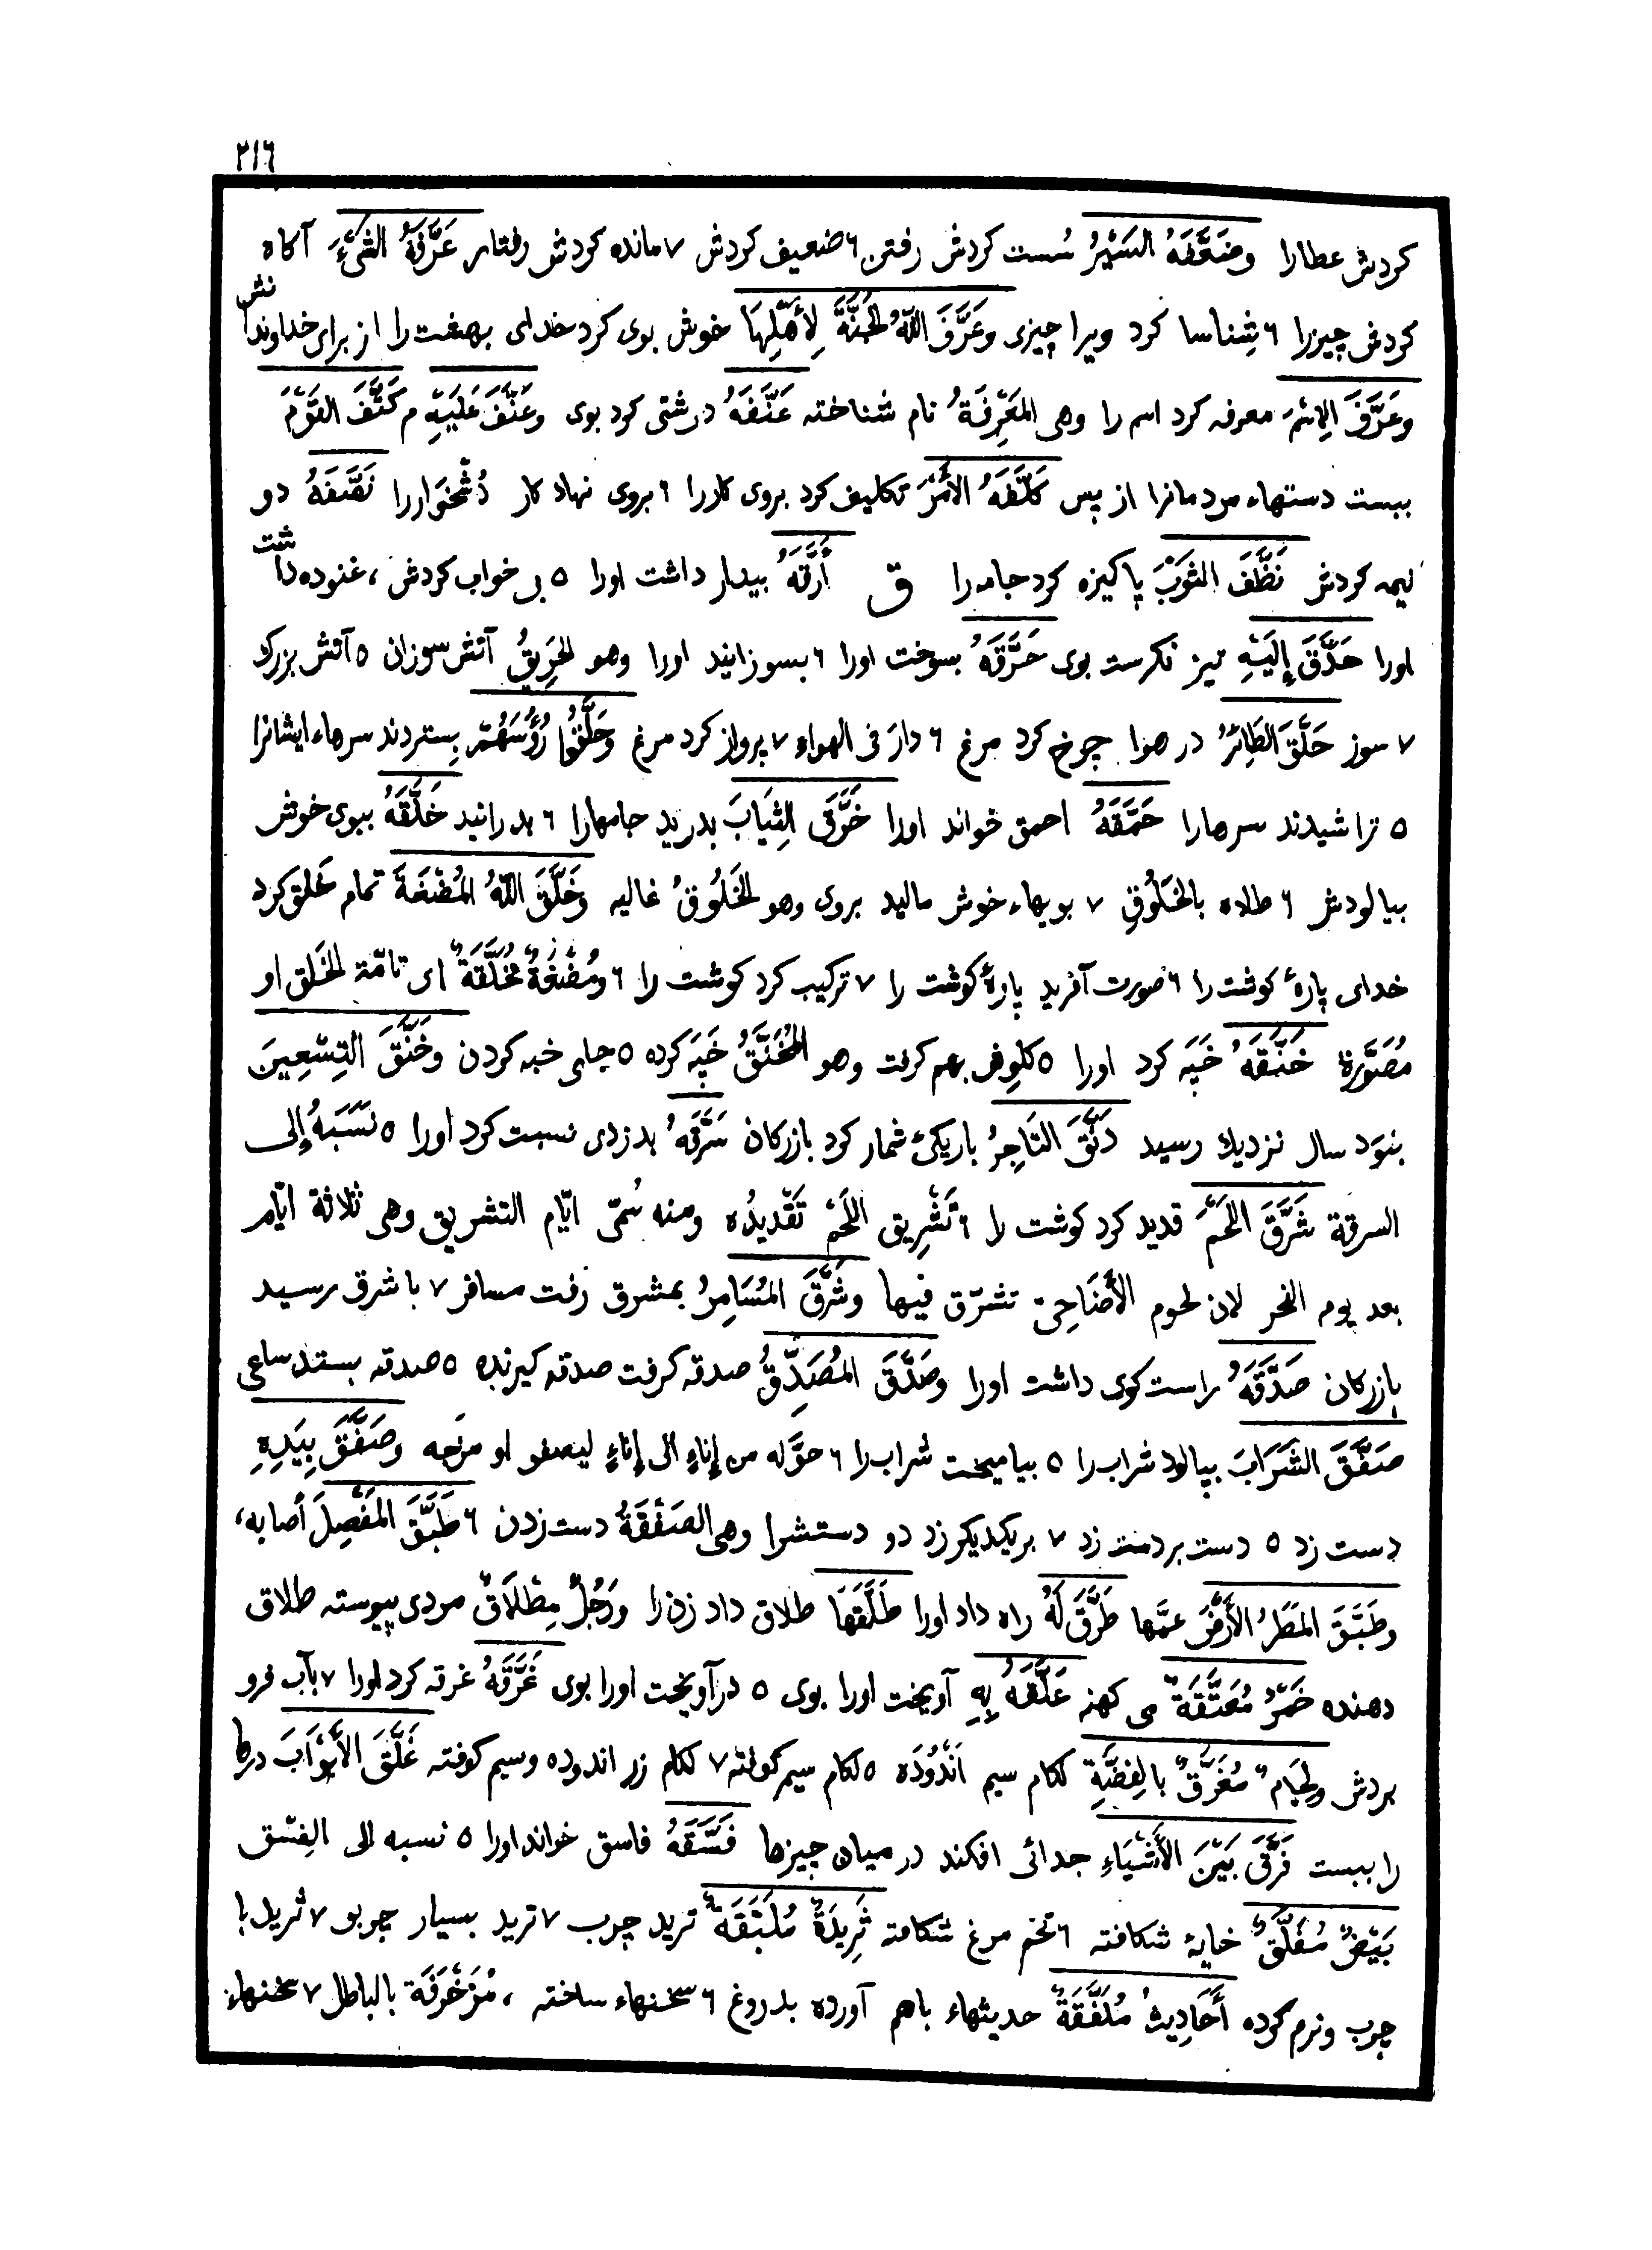 ٢١٦
كردش عطارا وضَعَّفَهُ السَّيْرُ سُست كردش رفتن ٦ ضعيف كردش ٧ مانده كردش رفتار عَرَّفَهُ الشَّىْءَ آكاه
كردش چيزرا ٦ شِناسا كرد ويرا چيزى وعَرَّفَ اللّٰهُ الجَنَّةَ لِأَهْلِهَا خوش بوى كرد خداى بهشت را از براى خداوندانش
وعَرَّفَ الاِسْمَ معرفه كرد اسم را وهى المَعْرِفَةُ نام شناخته عَنَّفَهُ درشتى كرد بوى وعَنَّفَ عَلَيْهِ م كَتَّفَ القَوْمَ
ببست دستهاء مردمانرا از پس كَلَّفَهُ الأَمْرَ تكليف كرد بروى كاررا ٦ بروى نهاد كار دُشْخوَاررا نَصَّفَهُ دو
نيمه كردش نَظَّفَ الثَوْبَ پاكيزه كرد جامه را ق أَرَّقَهُ بيدار داشت اورا ٥ بى خواب كردش ، غنوده داشت
اورا حَدَّقَ إِلَيْهِ تيز نكرست بوى حَرَّقَهُ بسوخت اورا ٦ بسوزانيد اورا وهو الحَرِيقُ آتش سوزان ٥ آتش بزرك
٧ سوز حَلَّقَ الطَائِرُ در هوا چرخ كرد مرغ ٦ دارَ فى الهواء ٧ پرواز كرد مرغ وحَلَّقُوا رُؤُسَهُمْ بِستردند سرهاء ايشانرا
٥ تراشيدند سرهارا حَمَّقَهُ احمق خواند اورا خَرَّقَ الثِيَابَ بدريد جامهارا ٦ بدرانيد خَلَّقَهُ ببوى خوش
بيالودش ٦ طلاه بالخَلُوقِ ٧ بويهاء خوش ماليد بروى وهو الخَلُوقُ غاليه وخَلَّقَ اللّٰهُ المُضْغَةَ تمام خلق كرد
خداى پارهٔ كوشت را ٦ صورت آفريد پارهٔ كوشت را ٧ تركيب كرد كوشت را ٦ ومُضْغَةٌ مُخَلَّقَةٌ اى تامّة الخَلق او
مُصَوَّرة خَنَّقَهُ خَپَه كرد اورا ٥ كلوش بهم كرفت وهو المُخَنَّقُ خَپَه كرده ٥ جاى خبه كردن وخَنَّقَ التِسْعِينَ
بنوَد سال نزديك رسيد دَنَّقَ التَاجِرُ باريكى شمار كرد بازركان سَرَّقَهُ بدزدى نسبت كرد اورا ٥ نَسَبَهُ إلى
السرقة شَرَّقَ اللَحْمَ قديد كرد كوشت را ٦ تَشْرِيق اللَحْم تَقْديدُه ومنه سُمّى ايّام التشريق وهى ثلاثة ايّام
بعد يوم النحر لان لحوم الأَضَاحِىّ تشرّق فيها وشَرَّقَ المُسَامِرُ بمشرق رفت مسافر ٧ با شرق رسيد
بازركان صَدَّقَهُ راست كوى داشت اورا وصَدَّقَ المُصَدِّقُ صدقه كرفت صدقه كيرنده ٥ صدقه بستد ساعى
صَفَّقَ الشَرَابَ بپالود شراب را ٥ بياميخت شراب را ٦ حوَّله من إناءٍ الى إناءٍ ليصفو او مزَجه وصَفَّقَ بِيَدِهِ
دست زد ٥ دست بردست زد ٧ بريكديكر زد دو دستشرا وهى الصَفْقَةُ دست زدن ٦ طَبَّقَ المَفْصِلَ أصابه،
وطَبَّقَ المَطَرُ الأَرْضَ عمَّها طَرَّقَ لَهُ راه داد اورا طَلَّقَهَا طلاق داد زن را ورَجُلٌ مِطْلَاقٌ مردى پيوسته طلاق
دهنده خَمْرٌ مُعَتَّقَةٌ مى كهنه عَلَّقَهُ بِهِ آويخت اورا بوى ٥ درآويخت اورا بوى غَرَّقَهُ غرقه كرد اورا ٧ بآب فرو
بردش ولِجَامٌ مُغَرَّقٌ بالِفضَّةِ لكام سيم اَنْدُودَه ٥ لكام سيم كوفته ٧ لكام زر اندوده وسيم كوفته غَلَّقَ الأَبْوَابَ درها
را ببست فَرَّقَ بَيْنَ الأَشْيَاءِ جدائى افكند در ميان چيزها فَسَّقَهُ فاسق خواند اورا ٥ نسبه الى الفِسْق
بَيْضٌ مُفَلَّقٌ خايهٔ شكافته ٦ تخم مرغ شكافته ثَرِيدَةٌ مُلَبَّقَةٌ تريد چرب ٧ تريد بسيار چربو ٧ ثريد با
چرب ونرم كرده أَحَادِيثُ مُلَفَّقَةٌ حديثهاء باهم آورده بدروغ ٦ سخنهاء ساخته ، مُزَخْرَفَة بالباطل ٧ سخنهاء